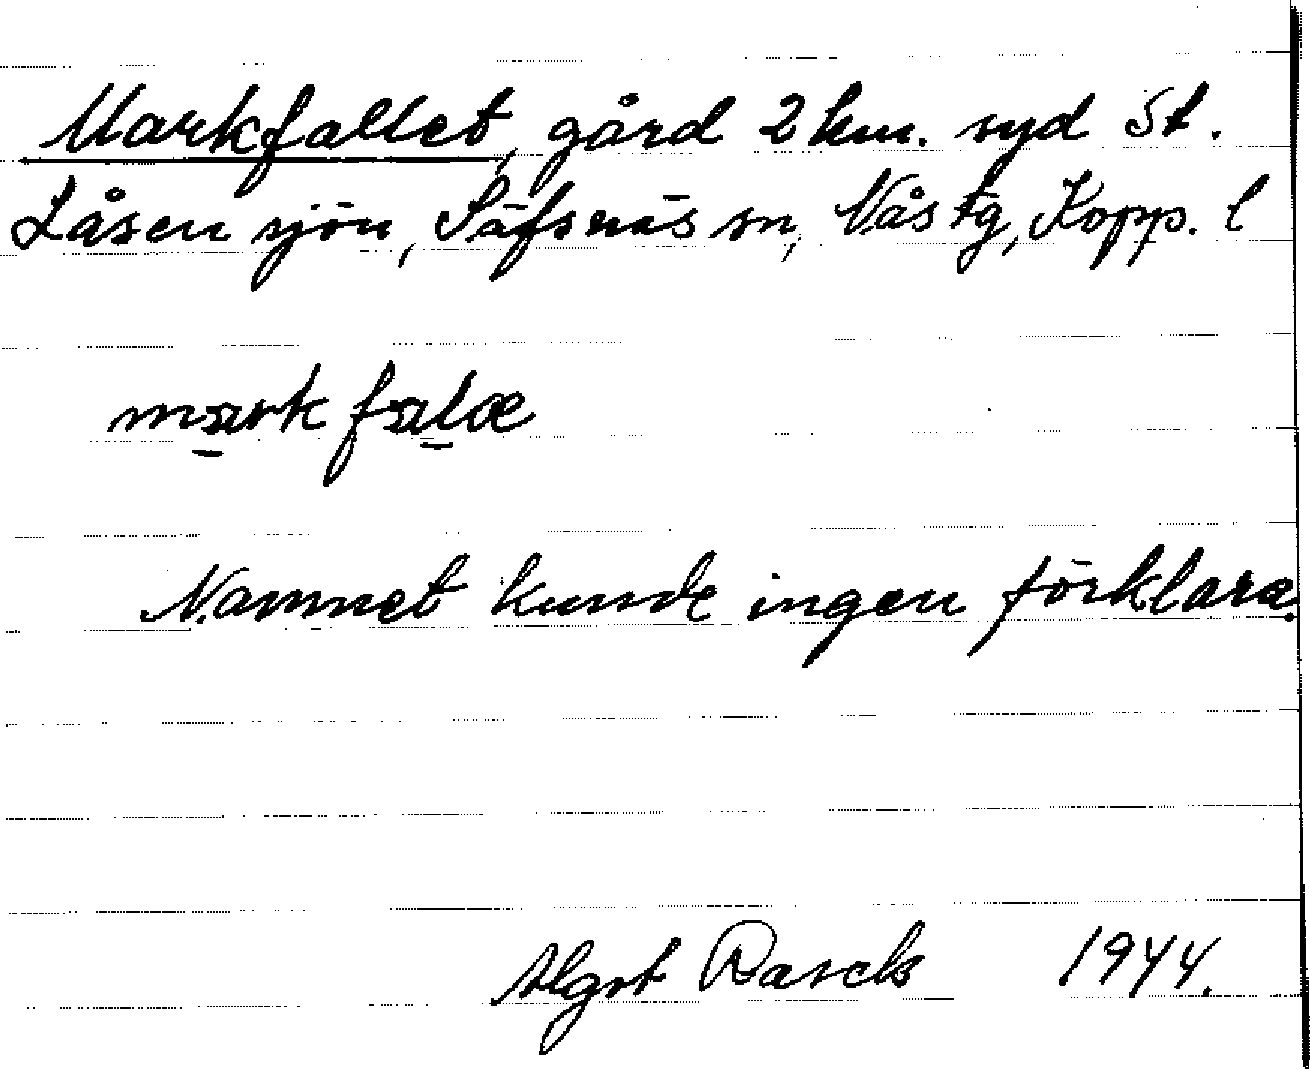 Markfallet, gård 2 km. syd St.
Låsen sjön, Säfsnäs sn, Nås tg, Kopp. l
mark falæ
Namnet kunde ingen förklara.
Algot Rasck 1944.